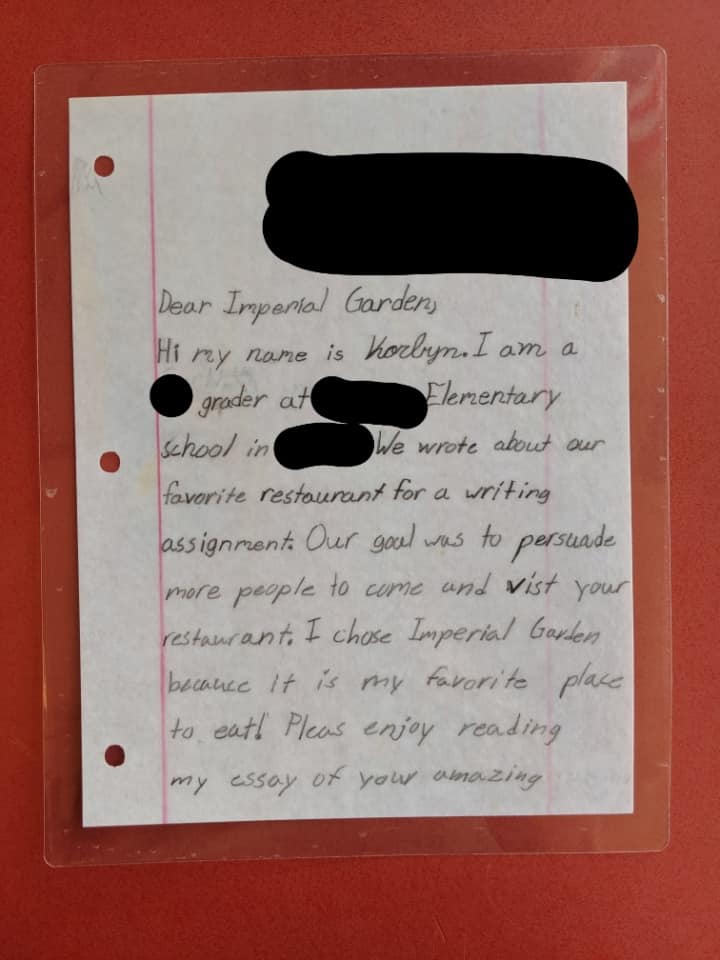 Dear Imperial Garden,
Hi my name is Korbyn. I am a
grader at Elementary
school in We wrote about our
favorite restaurant for a writing
assignment. Our goal was to persuade
more people to come and vist your
restaurant. I chose Imperial Garden
because it is my favorite place
to eat! Pleas enjoy reading
my essay of your amazing